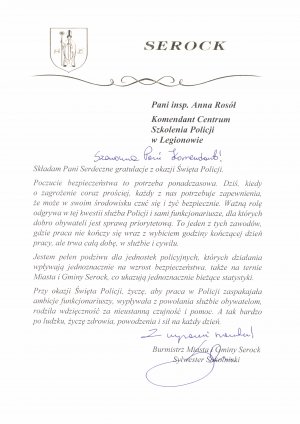 SEROCK
Pani insp. Anna Rosół
Komendant Centrum
Szkolenia Policji
w Legionowie
Szanowna Pani Komendant!
Składam Pani Serdeczne gratulacje z okazji Święta Policji.
Poczucie bezpieczeństwa to potrzeba ponadczasowa. Dziś, kiedy
o zagrożenie coraz prościej, każdy z nas potrzebuje zapewnienia,
że może w swoim środowisku czuć się i żyć bezpiecznie. Ważną rolę
odgrywa w tej kwestii służba Policji i sami funkcjonariusze, dla których
dobro obywateli jest sprawą priorytetową. To jeden z tych zawodów,
gdzie praca nie kończy się wraz z wybiciem godziny kończącej dzień
pracy, ale trwa całą dobę, w służbie i cywilu.
Jestem pełen podziwu dla jednostek policyjnych, których działania
wpływają jednoznacznie na wzrost bezpieczeństwa, także na ternie
Miasta i Gminy Serock, co ukazują jednoznacznie bieżące statystyki.
Przy okazji Święta Policji, życzę, aby praca w Policji zaspakajała
ambicje funkcjonariuszy, wypływała z powołania służbie obywatelom,
rodziła wdzięczność za nieustanną czujność i pomoc. A tak bardzo
po ludzku, życzę zdrowia, powodzenia i sił na każdy dzień.
Z wyrazami szacunku!
Burmistrz Miasta i Gminy Serock
Sylwester Sokolnicki